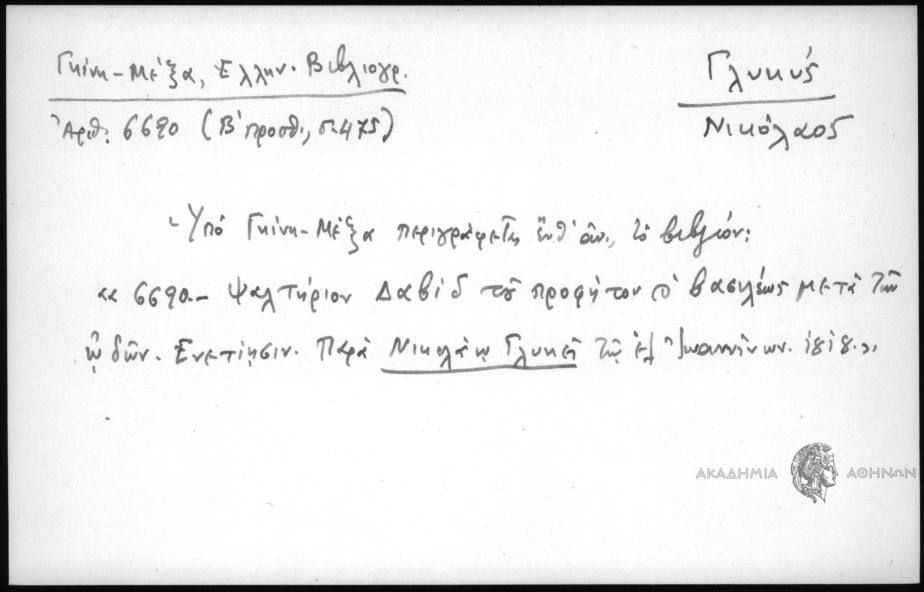 Γκίνη-Μέξα, Ελλην. Βιβλιογρ.
Ἀριθ. 6690 (Β' προσθ., σ. 475)
Γλυκύς
Νικόλαος
Ὑπό Γκίνη-Μέξα περιγράφεται τό βιβλίον:
«6690.- Ψαλτήριον Δαβίδ τοῦ προφήτου καὶ βασιλέως μετὰ τῶν
ᾠδῶν. Ενετίησιν. Παρὰ Νικολάῳ Γλυκεῖ τῷ ἐξ Ἰωαννίνων. 1818.»
ΑΚΑΔΗΜΙΑ ΑΘΗΝΩΝ